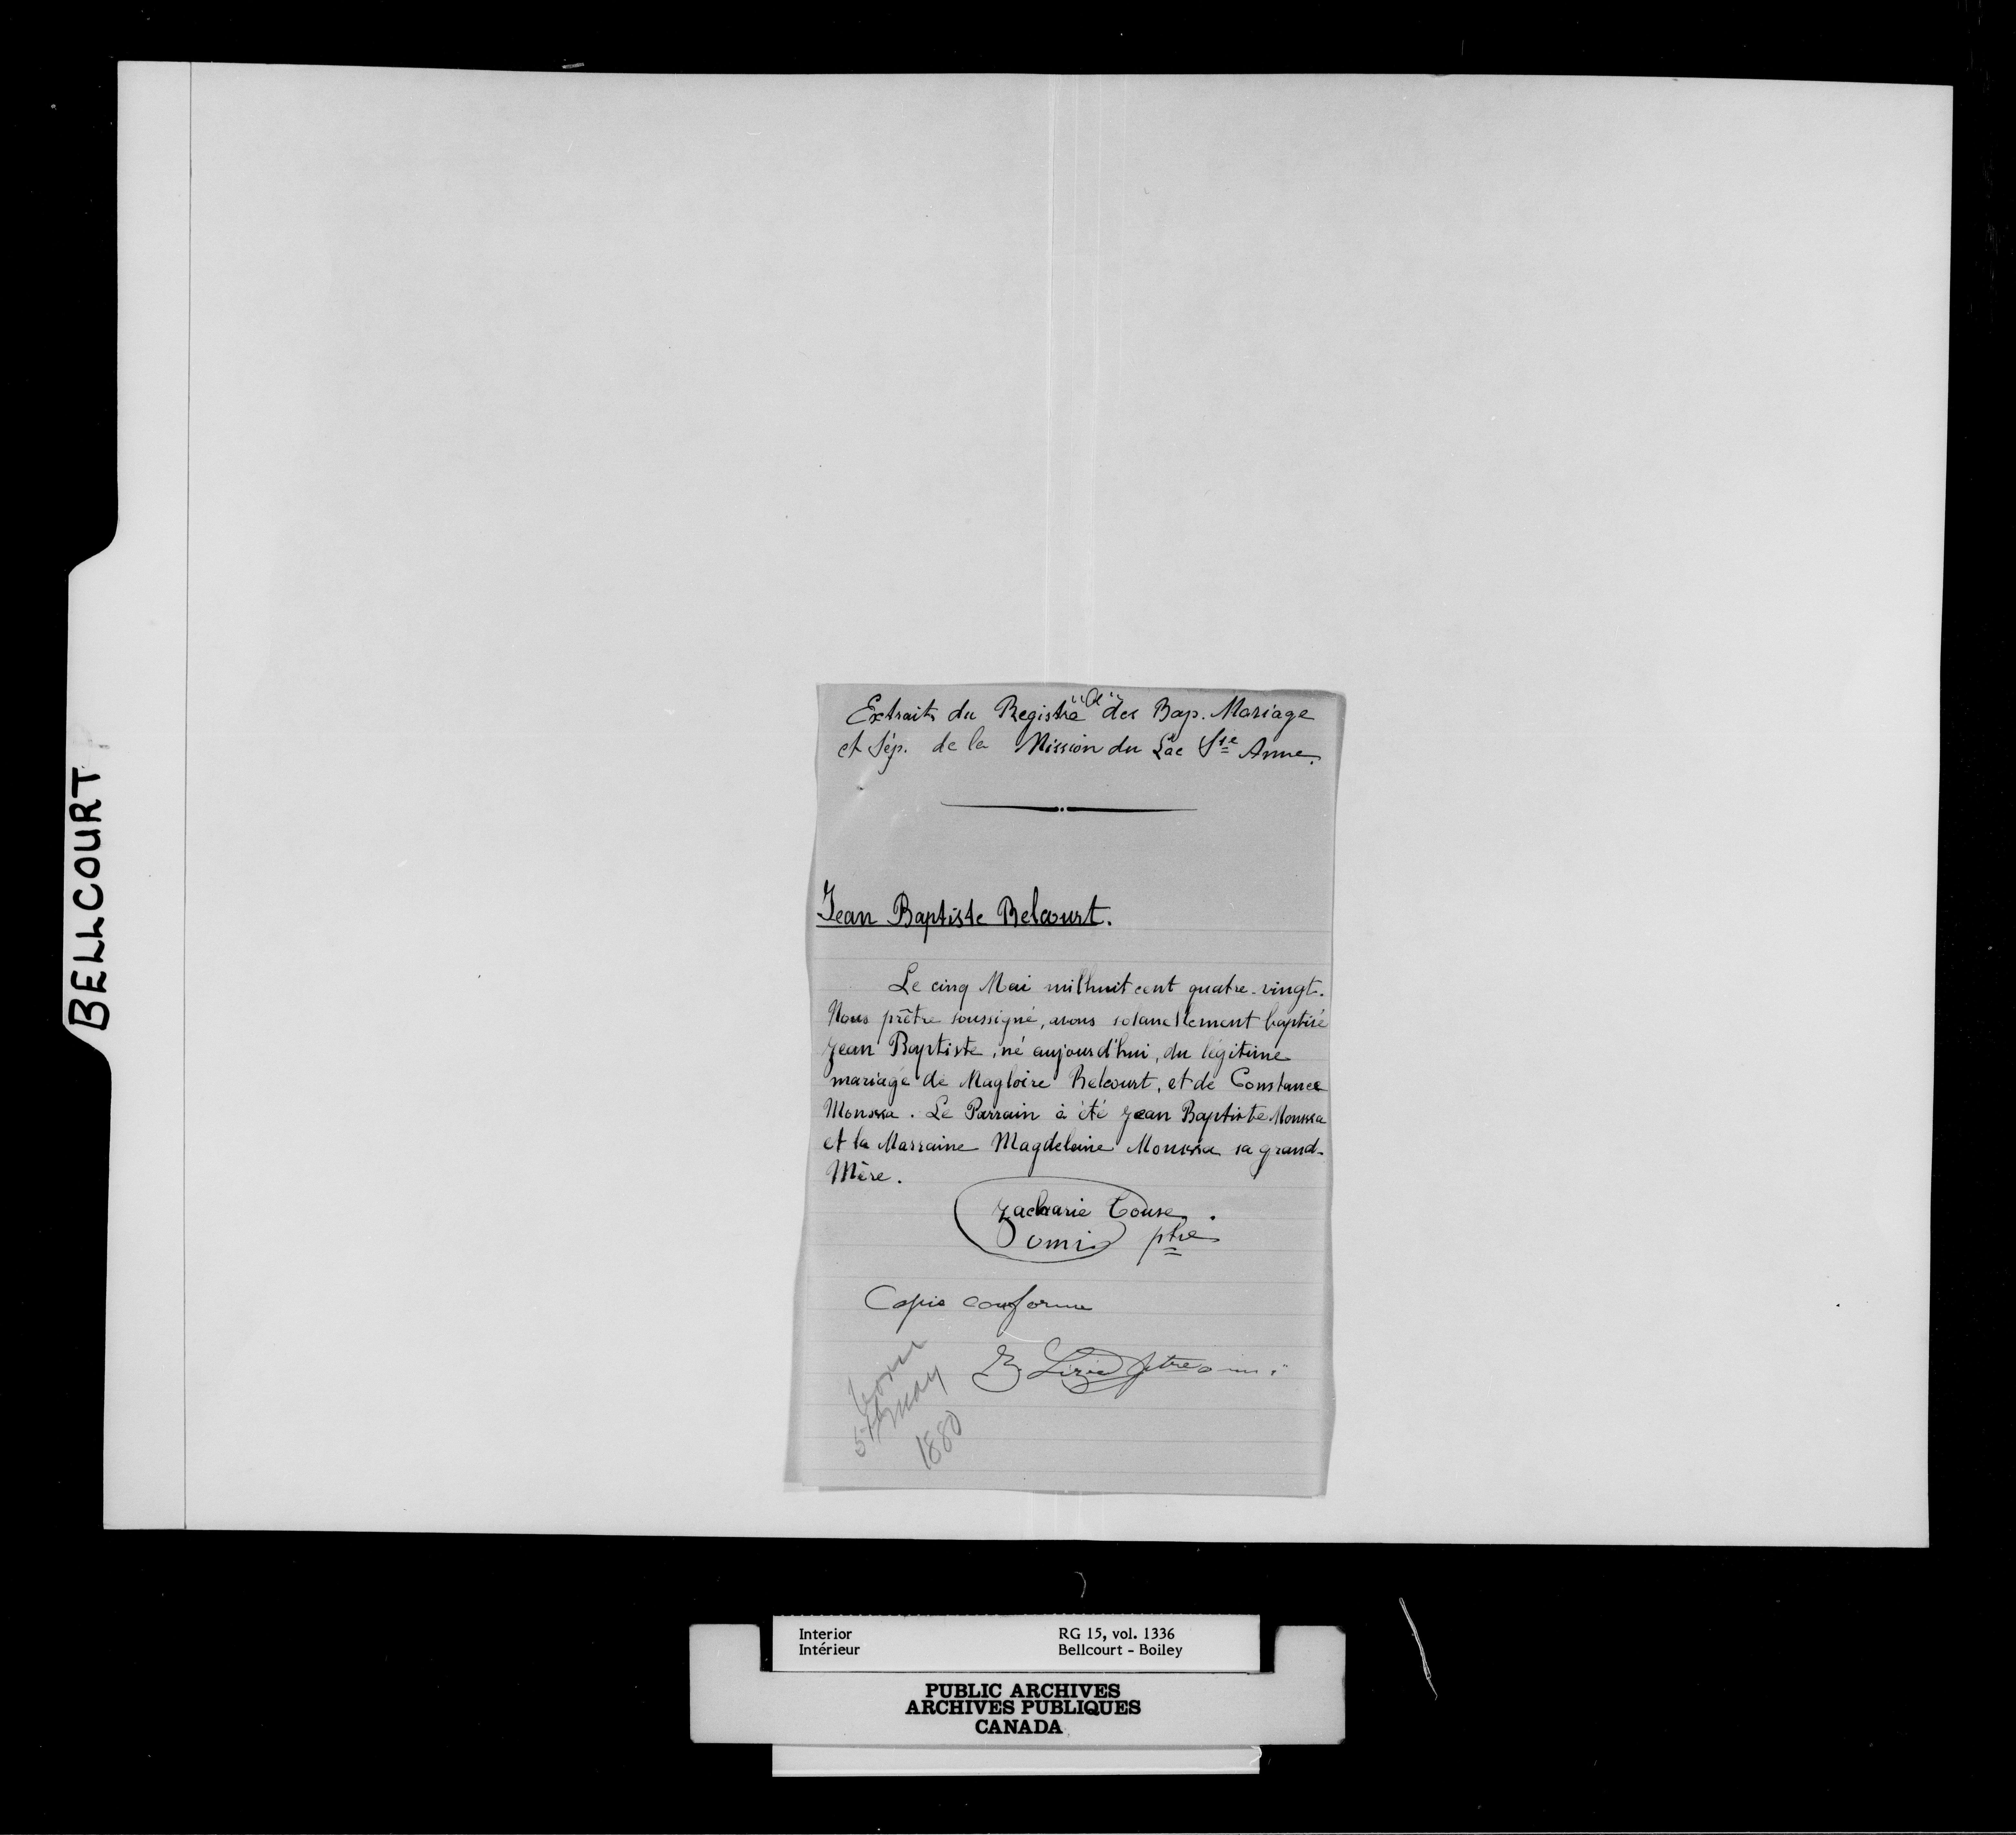 BELLCOURT
Extraits du Registre "A" des Bap. Mariage
et Sép. de la Mission du Lac Ste Anne.
Jean Baptiste Belcourt.
Le cinq Mai mil huit cent quatre-vingt.
Nous prêtre soussigné, avons solanellement baptisé
Jean Baptiste, né aujourd'hui, du légitime
mariage de Magloire Belcourt, et de Constance
Moussa. Le Parrain à été Jean Baptiste Moussa
et la Marraine Magdeleine Moussa sa grand-
Mère.
Zacharie Touze.
omi ptre
Copie conforme
Z. Lizée ptre omi
born
5th May
1880
Interior
Intérieur
RG 15, vol. 1336
Bellcourt - Boiley
PUBLIC ARCHIVES
ARCHIVES PUBLIQUES
CANADA